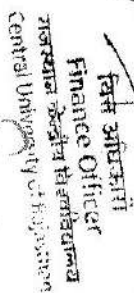 वित्त अधिकारी
Finance Officer
राजस्थान केन्द्रीय विश्वविद्यालय
Central University of Rajasthan